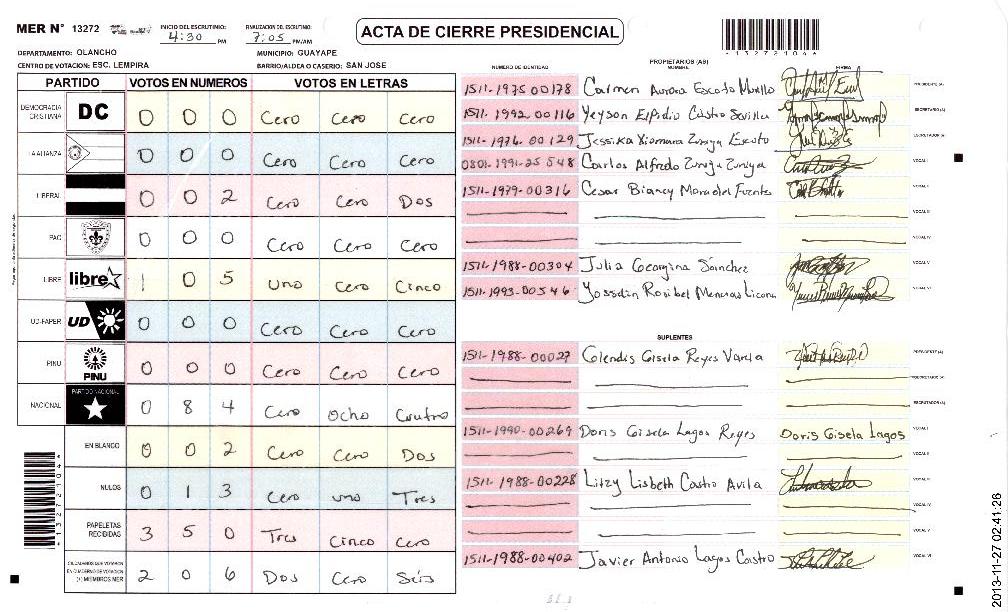 MER N° 13272
INICIO DEL ESCRUTINIO: 4:30 PM
FINALIZACION DEL ESCRUTINIO: 7:05 PM/AM
ACTA DE CIERRE PRESIDENCIAL
DEPARTAMENTO: OLANCHO
MUNICIPIO: GUAYAPE
CENTRO DE VOTACION: ESC. LEMPIRA
BARRIO/ALDEA O CASERIO: SAN JOSE
PARTIDO VOTOS EN NUMEROS VOTOS EN LETRAS
DEMOCRACIA CRISTIANA DC 0 0 0 Cero Cero Cero
LA ALIANZA 0 0 0 Cero Cero Cero
LIBERAL 0 0 2 Cero Cero Dos
PAC 0 0 0 Cero Cero Cero
LIBRE libre 1 0 5 Uno Cero Cinco
UD-FAPER UD 0 0 0 Cero Cero Cero
PINU PINU 0 0 0 Cero Cero Cero
NACIONAL PARTIDO NACIONAL 0 8 4 Cero Ocho Cuatro
EN BLANCO 0 0 2 Cero Cero Dos
NULOS 0 1 3 Cero uno Tres
PAPELETAS RECIBIDAS 3 5 0 Tres Cinco Cero
CIUDADANOS QUE VOTARON EN CUADERNO DE VOTACION (+) MIEMBROS MER 2 0 6 Dos Cero Seis
PROPIETARIOS (AS)
NUMERO DE IDENTIDAD NOMBRE FIRMA
1511-1975 00178 Carmen Aurora Escoto Murillo PRESIDENTE (A)
1511-1992 00116 Yeyson Elpidio Castro Sevilla SECRETARIO (A)
1511-1976-00129 Jessika Xiomara Zuniga Escoto ESCRUTADOR (A)
0801-1991-25548 Carlos Alfredo Zuniga Zuniga VOCAL I
1511-1979-00316 Cesar Biancy VOCAL II
VOCAL III
VOCAL IV
1511-1988-00304 Julia Georgina Sánchez VOCAL V
1511-1993-00546 Yosselin Rosibel Licona VOCAL VI
SUPLENTES
1511-1988-00027 Glendis Gisela Reyes Varela PRESIDENTE (A)
SECRETARIO (A)
ESCRUTADOR (A)
1511-1990-00269 Doris Gisela Lagos Reyes Doris Gisela Lagos VOCAL I
VOCAL II
1511-1988-00228 Litzy Lisbeth Castro Avila VOCAL III
VOCAL IV
VOCAL V
1511-1988-00402 Javier Antonio Lagos Castro VOCAL VI
2013-11-27 02:41:26